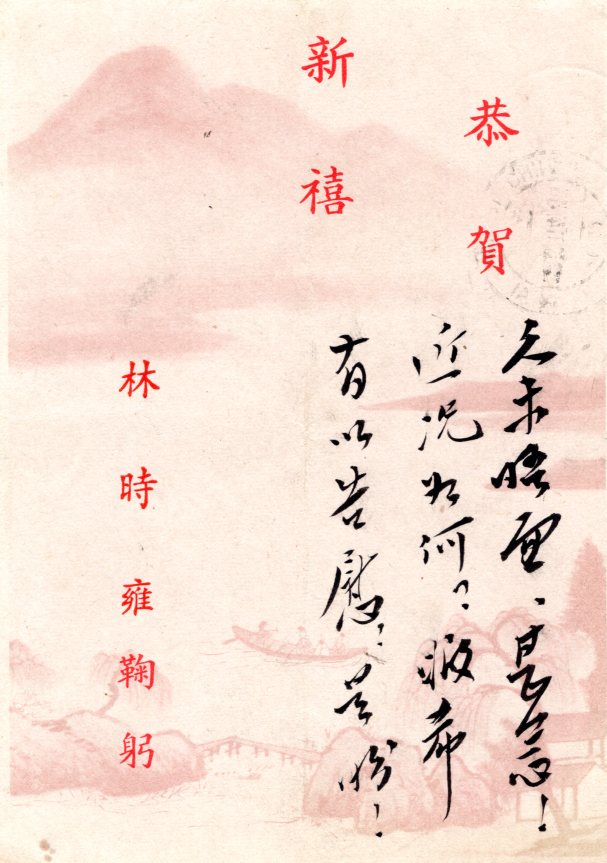 恭賀
新禧
久未晤面、甚念!
近況如何?暇希
有以告慰!是盼!
林時雍鞠躬